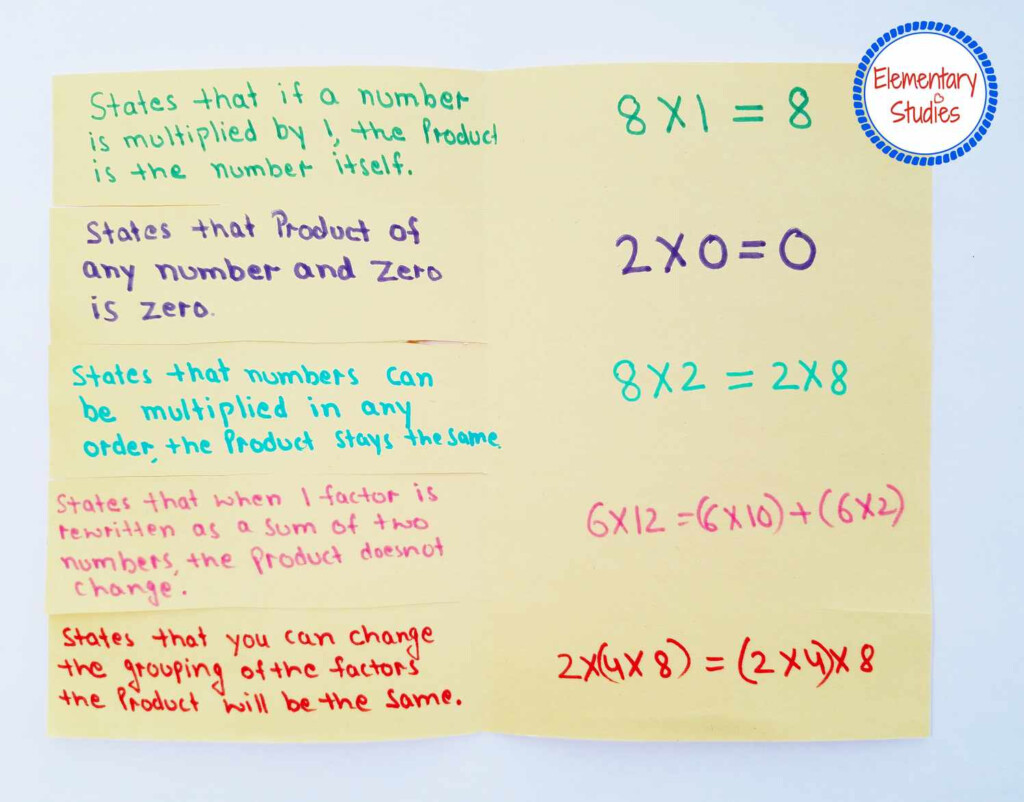 Elementary
Studies
States that if a number
is multiplied by 1, the Product
is the number itself.
8 X 1 = 8
States that Product of
any number and Zero
is zero.
2 X 0 = 0
States that numbers can
be multiplied in any
order, the Product stays the same.
8 X 2 = 2 X 8
States that when 1 factor is
rewritten as a sum of two
numbers, the Product doesnot
change.
6 X 12 = (6 X 10) + (6 X 2)
States that you can change
the grouping of the factors
the Product will be the same.
2 X (4 X 8) = (2 X 4) X 8